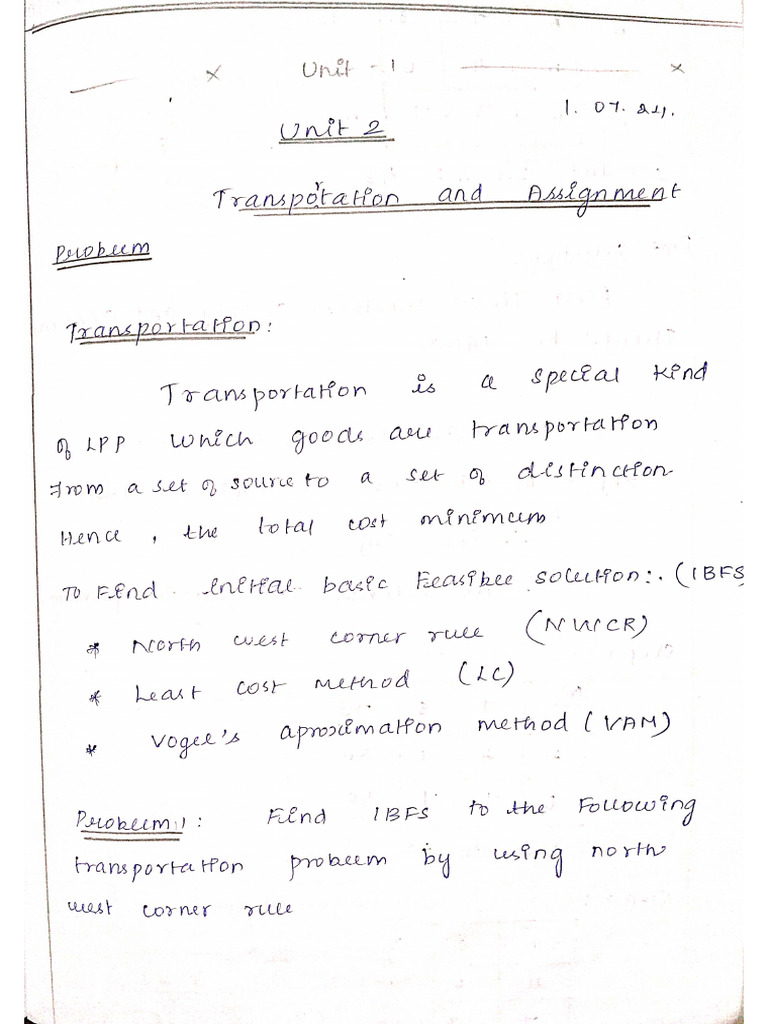 x Unit - 1 x
1. 07. 24.
Unit 2
Transportation and Assignment
Problem
Transportation:
Transportation is a special kind
of LPP which goods are transportation
From a set of source to a set of distinction
Hence, the total cost minimum
To Find initial basic Feasible solution:. (IBFS
* North west corner rule (NWCR)
* Least cost method (LC)
* Vogel's aproximation method (VAM)
Problem 1: Find IBFS to the Following
transportation problem by using north
west corner rule